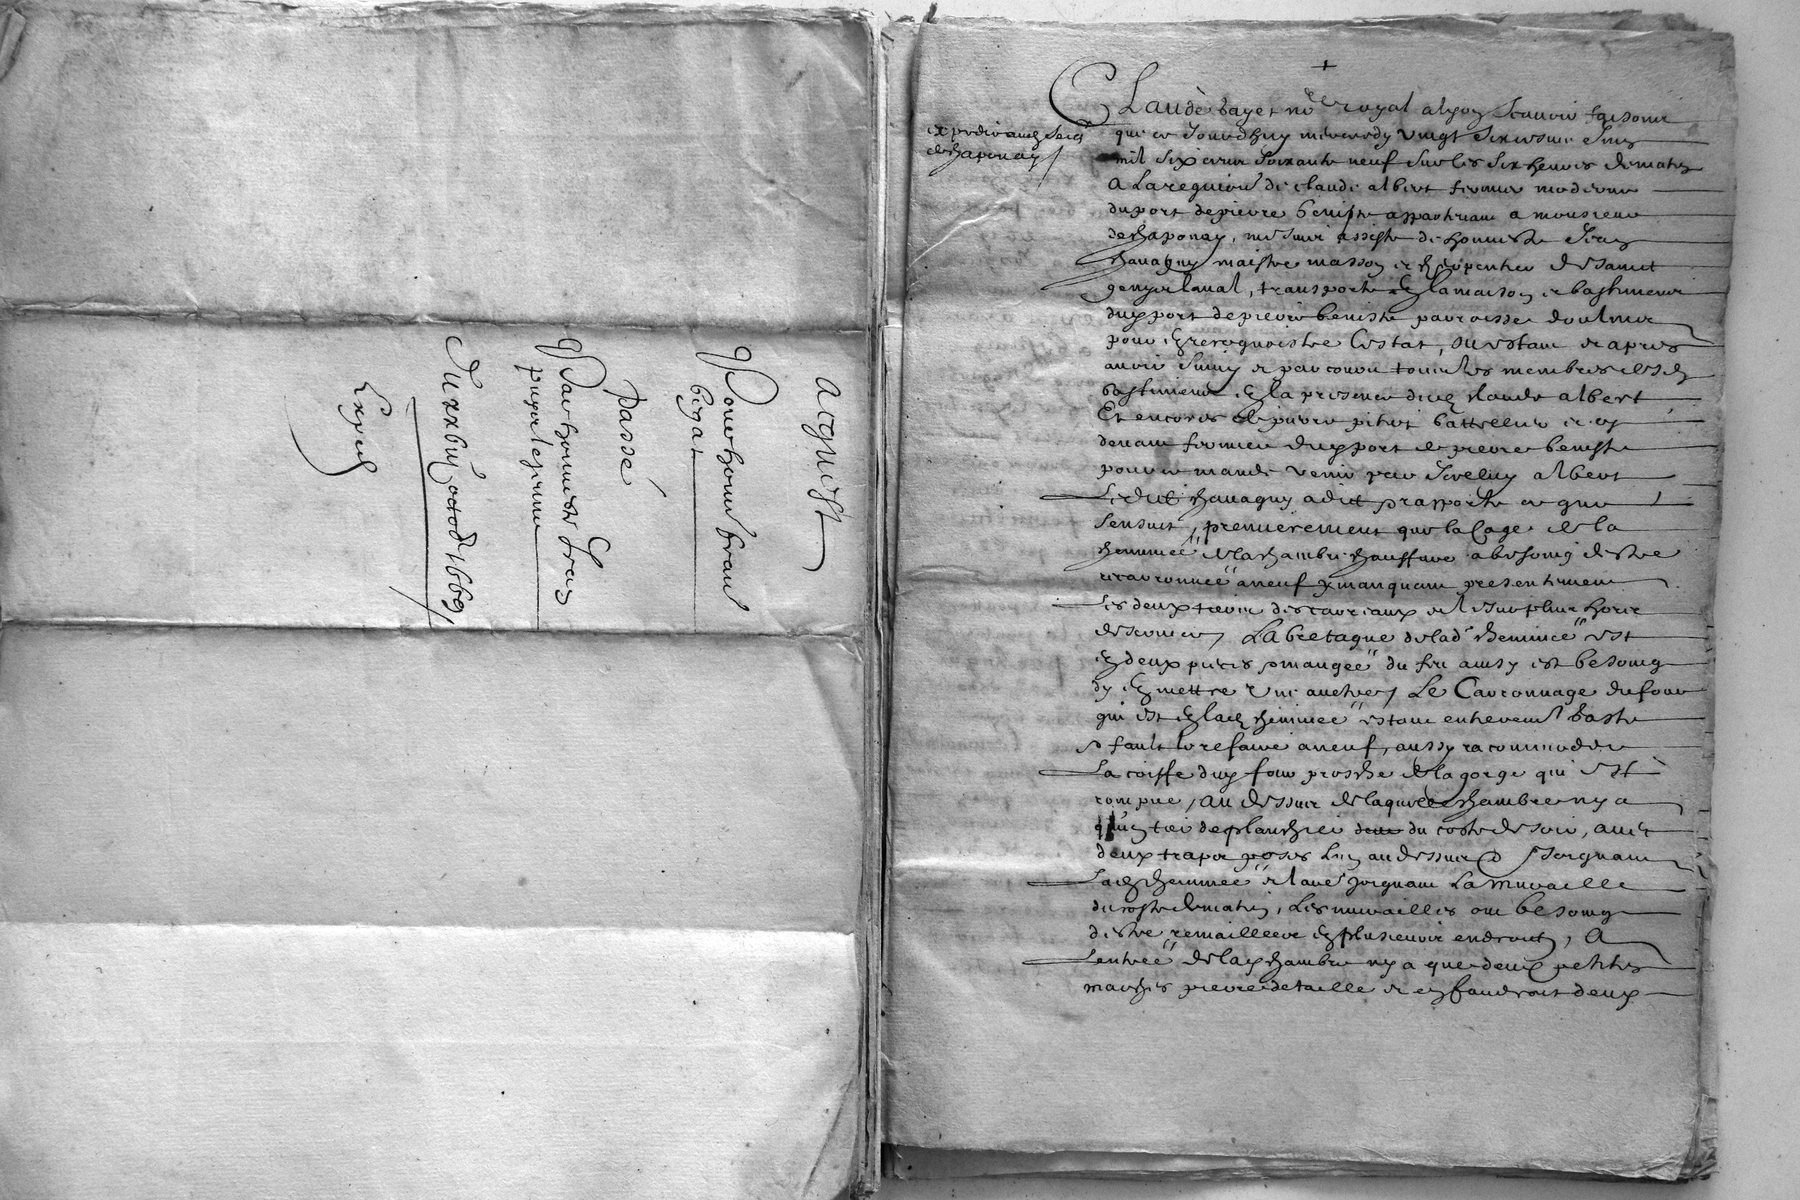 acquist
Pour honn fran
bigat
passé
Par honneste Jean
pupil le jeune
Du xxbiij octob 1669
Exped
+
Claude bayet no.re royal a lyon scavoir faisons
expedié aud Seig
de chaponay
que ce Jourdhuy mercredy vingt sixiesme Juin
mil six cens soixante neuf sur les six heures de matin
A La requeire de claude albert fermier moderne
du port de pierre beniste appartenant a monsieur
de chaponay, me suis assisté de honneste Jean
chavagny maistre masson et charpentier de saint
genis laval, transporté en la maison et bastiment
dud port de pierre beniste parroisse doulins
pour en recognoistre lestat, ou estant et apres
avoir suivy et parcouru tous les membres desd
bastiment en la presence dud claude albert
Et encores de pierre pitiot battellier et cy
devant fermier dud port de pierre beniste
pour ce mandé venir par Icelluy albert
Ledict chavagny a dict et rapporté ce que
sensuit, premierement que la Cage de la
cheminée de la chambre chauffure a besoing destre
recarronnée a neuf y manquant presentement
les deux tiers des carreaux et le surplus hors
de service, La bretagne de lad cheminée est
en deux pieces mangée du feu ainsy est besoing
dy en mettre une aultre, Le Carronnage du four
qui est en lad cheminée estant entierement basté
Il fault le refaire a neuf, aussy racommoder
La coiffe dud four proche de la gorge qui est
rompue, au dessus de laquelle chambre ny a
qun tiers de planchier du costé de soir, avec
deux trapes posés lun au dessus Joignant
Lad cheminée et laue Joignant La muraille
du costé de matin, Les murailles ont besoing
destre remaillees en plusieurs endroits, A
Lentrée de lad chambre ny a que deux petites
marches pierre de taille et en faudroit deux